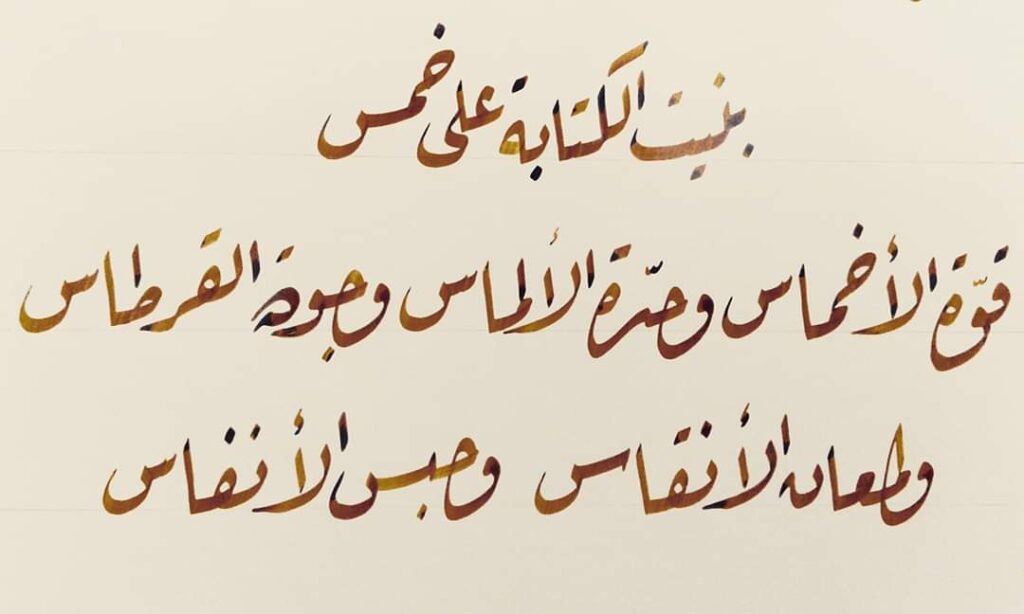 بنيت الكتابة على خمس
قوّة الأخماس وحدّة الألماس وجودة القرطاس
ولمعان الأنقاس وحبس الأنفاس